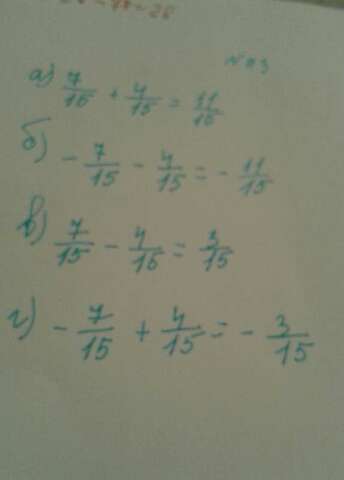 а) 7/15 + 4/15 = 11/15
б) - 7/15 - 4/15 = - 11/15
в) 7/15 - 4/15 = 3/15
г) - 7/15 + 4/15 = - 3/15